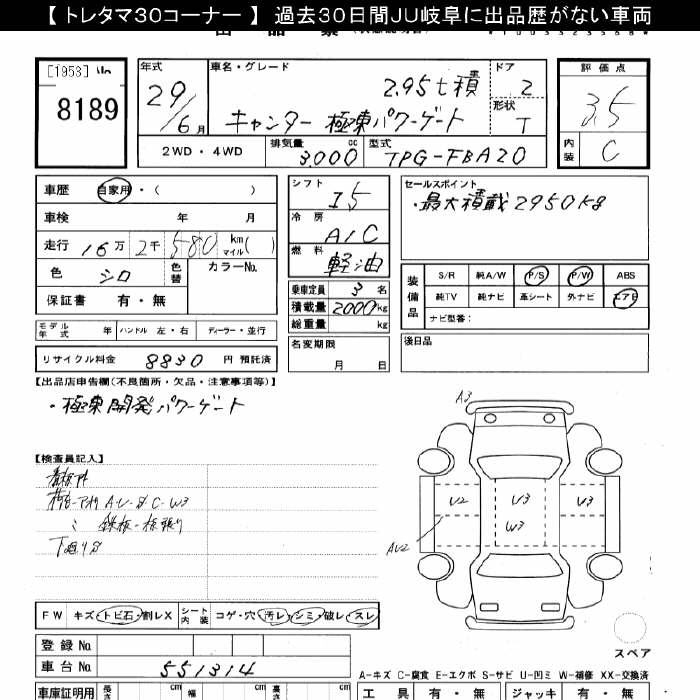 【 トレタマ30コーナー 】 過去30日間JU岐阜に出品歴がない車両
[1953]
8189
年式 29/6月
車名・グレード 2.95t積
キャンター 極東パワーゲート
ドア 2
形状 T
評価点 3.5
内装 C
2WD・4WD
排気量 3,000 cc
型式 TPG-FBA20
車歴 自家用・( )
車検 年 月
走行 16万 2千 580 km マイル( )
色 シロ 色替 カラーNo.
保証書 有・無
モデル年式 年 ハンドル 左・右 ディーラー・並行
リサイクル料金 8830 円 預託済
シフト I5
冷房 A/C
燃料 軽油
乗車定員 3 名
積載量 2000 kg
総重量 kg
名変期限 月 日
セールスポイント
・最大積載2950kg
装備品 S/R 純A/W P/S P/W ABS
純TV 純ナビ 革シート 外ナビ エアB
ナビ型番:
後日品
【出品店申告欄(不良箇所・欠品・注意事項等)】
・極東開発パワーゲート
【検査員記入】
A・U-S C-W3
鉄板-板張り
下廻りS
A3
U2 U3 U3
W3
AU2
FW キズ・トビ石・割レX シート内装 コゲ・穴 汚レ・シミ・破レ・スレ
スペア
登録No.
車台No. 551314
A-キズ C-腐食 E-エクボ S-サビ U-凹ミ W-補修 XX-交換済
車庫証明用 長さ cm 幅 cm 高さ cm
工具 有・無 ジャッキ 有・無